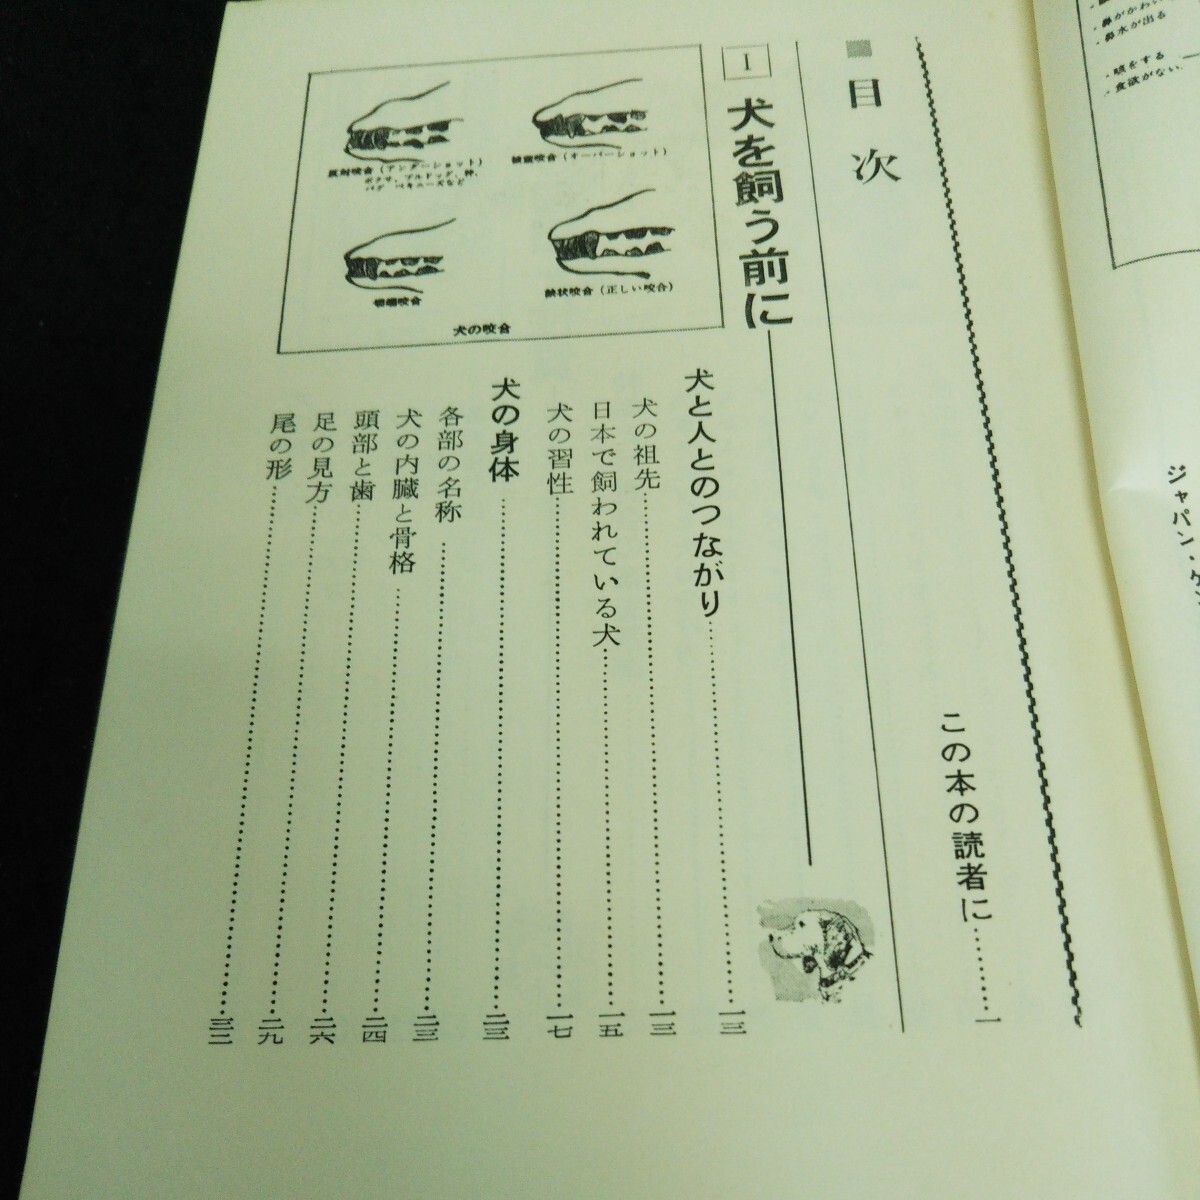 ・鼻がかわい
・鼻水が出る
・咳をする
・食欲がない
ジャパン・ケ
この本の読者に……一
■目次
Ⅰ 犬を飼う前に
犬と人とのつながり……一三
犬の祖先……一三
日本で飼われている犬……一五
犬の習性……一七
犬の身体……二三
各部の名称……二三
犬の内臓と骨格……二四
頭部と歯……二六
足の見方……二九
尾の形……三二
反対咬合（アンダーショット）
ボクサー、ブルドッグ、狆、
パグ ペキニーズなど
被蓋咬合（オーバーショット）
切端咬合
鋏状咬合（正しい咬合）
犬の咬合